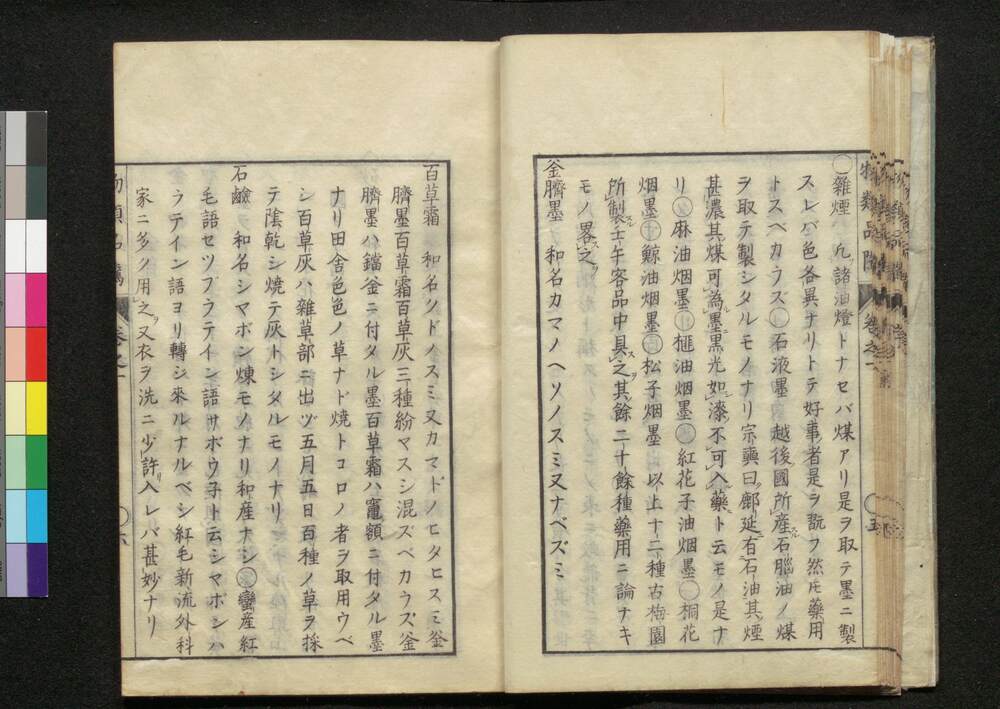 物類品隲 卷之一 五
○雜煙 凢諸油燈トナセバ煤アリ是ヲ取テ墨ニ製
スレバ色各異ナリトテ好事者是ヲ翫フ然𪜈藥用
トスベカラズ○石液墨 越後國所産石腦油ノ煤
ヲ取テ製シタルモノナリ宗奭曰鄜延有石油其煙
甚濃其煤可為墨黒光如漆不可入藥ト云モノ是ナ
リ 麻油烟墨 榧油烟墨 紅花子油烟墨 桐花
烟墨 鯨油烟墨 松子烟墨 以上十二種古梅園
所製壬午客品中具之其餘二十餘種藥用ニ論ナキ
モノ畧之
釜臍墨 和名カマノヘソノスミ又ナベズミ
百草霜 和名ソドノスミ又カマドノヒタヒスミ釜
臍墨百草霜百草灰三種紛マスシ混ズベカラズ釜
臍墨ハ鐺釜ニ付タル墨百草霜ハ竈額ニ付タル墨
ナリ田舎色色ノ草ナド焼トコロノ者ヲ取用ウベ
シ百草灰ハ雜草部ニ出ヅ五月五日百種ノ草ヲ採
テ陰乾シ焼テ灰トシタルモノナリ
石鹼 和名シマボン煉モノナリ和産ナシ 蠻産紅
毛語セツブラテイン語サボウ子ト云シマボンハ
ラテイン語ヨリ轉ジ來ルナルベシ紅毛新流外科
家ニ多ク用之又衣ヲ洗ニ少許入レバ甚妙ナリ
卷之一 六